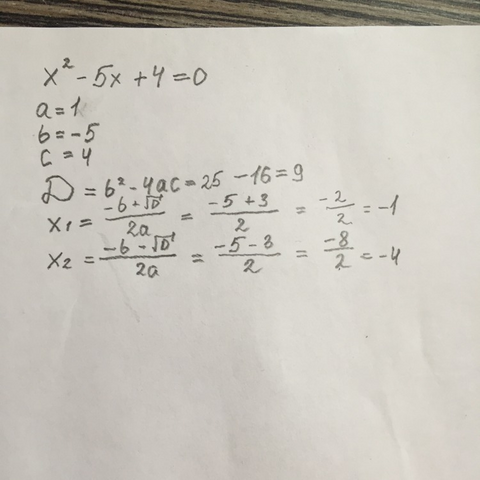 x² - 5x + 4 = 0
a = 1
b = -5
c = 4
D = b² - 4ac = 25 - 16 = 9
x₁ = (-b + √D)/2a = (-5 + 3)/2 = -2/2 = -1
x₂ = (-b - √D)/2a = (-5 - 3)/2 = -8/2 = -4